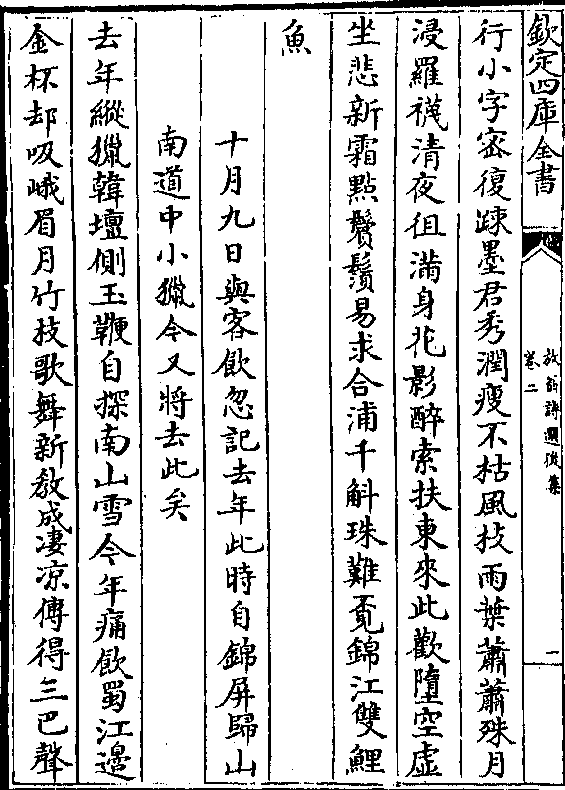 欽定四庫全書
放翁詩選後集
卷二
一
行小字密復踈墨君秀潤瘦不枯風枝雨葉蕭蕭殊月
浸羅襪清夜徂滿身花影醉索扶東來此歡墮空虛
坐悲新霜點鬢鬚易求合浦千斛珠難覔錦江雙鯉
魚
十月九日與客飲忽記去年此時自錦屏歸山
南道中小獵今又將去此矣
去年縱獵韓壇側玉鞭自探南山雪今年痛飲蜀江邊
金杯却吸峨眉月竹枝歌舞新教成凄凉傳得三巴聲